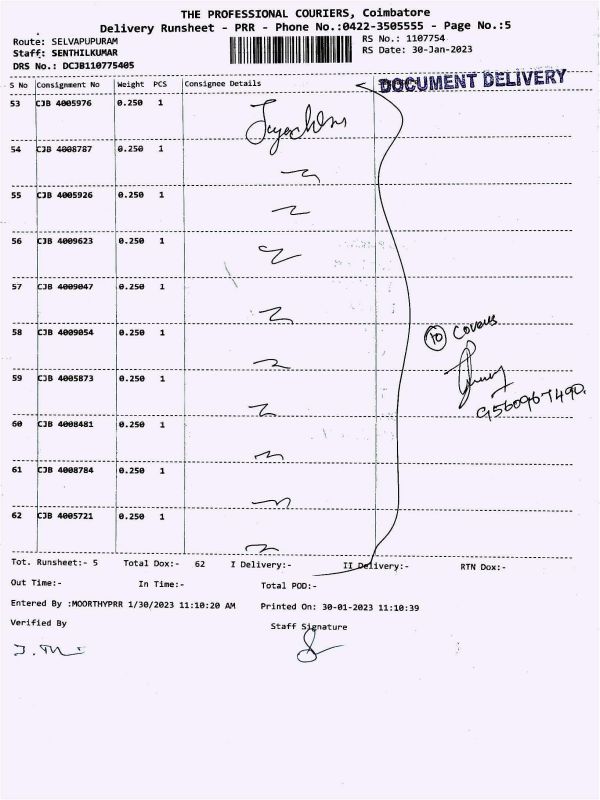 THE PROFESSIONAL COURIERS, Coimbatore
Delivery Runsheet - PRR - Phone No.:0422-3505555 - Page No.:5
Route: SELVAPUPURAM
RS No.: 1107754
Staff: SENTHILKUMAR
RS Date: 30-Jan-2023
DRS No.: DCJB110775405
DOCUMENT DELIVERY
S No Consignment No Weight PCS Consignee Details
53 CJB 4005976 0.250 1
54 CJB 4008787 0.250 1
55 CJB 4005926 0.250 1
56 CJB 4009623 0.250 1
57 CJB 4009047 0.250 1
58 CJB 4009054 0.250 1
10 Covers
59 CJB 4005873 0.250 1
9560967490.
60 CJB 4008481 0.250 1
61 CJB 4008784 0.250 1
62 CJB 4005721 0.250 1
Tot. Runsheet:- 5 Total Dox:- 62 I Delivery:- II Delivery:- RTN Dox:-
Out Time:- In Time:- Total POD:-
Entered By :MOORTHYPRR 1/30/2023 11:10:20 AM Printed On: 30-01-2023 11:10:39
Verified By Staff Signature